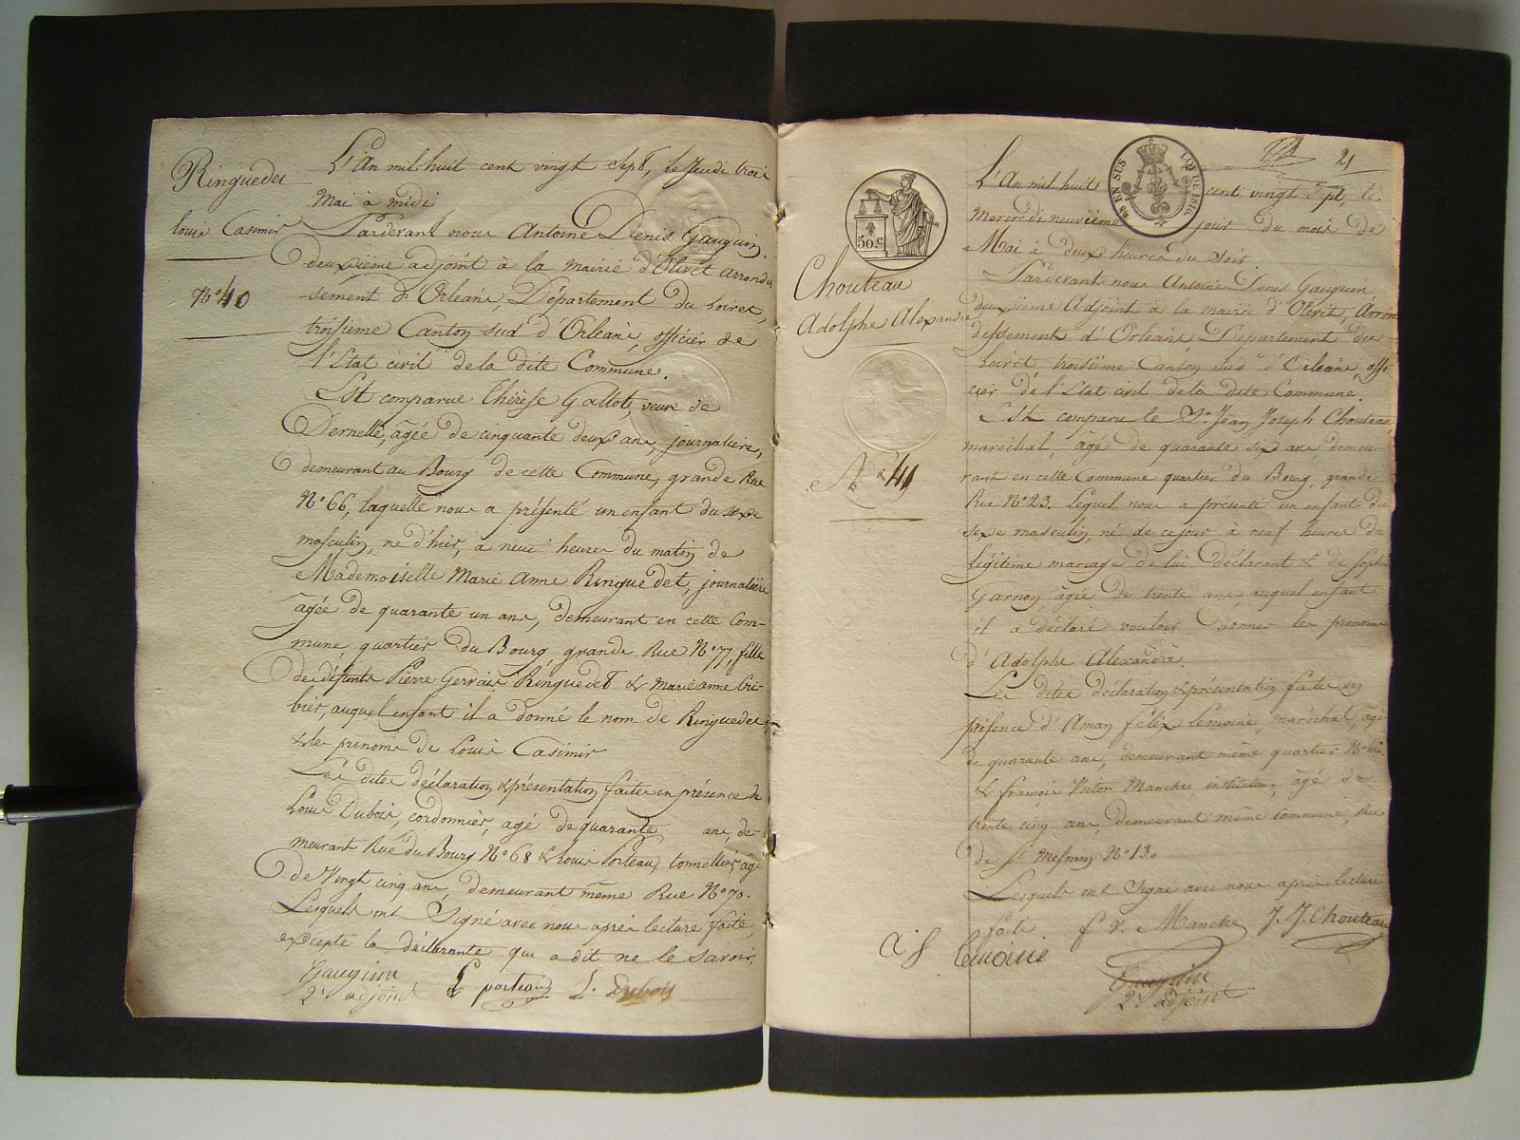 Ringuedet
Louis Casimir
N° 40
L'An mil huit cent vingt Sept, le Jeudi trois
Mai à midi
Pardevant nous Antoine Denis Gauguin
deuxième adjoint à la mairie d'Olivet arrondis
sement d'Orléans, Département du Loiret,
troisième Canton sud d'Orléans, officier de
l'Etat civil de la dite Commune.
Est comparue Thérèse Gallot, veuve de
Dernelle, agée de cinquante deux ans, journalière,
demeurant au Bourg de cette Commune, grande Rue
N° 66, laquelle nous a présenté un enfant du sexe
masculin, né d'hier, à neuf heures du matin de
Mademoiselle Marie Anne Ringuedet, journalière
agée de quarante un ans, demeurant en cette Com-
mune, quartier du Bourg grande Rue N° 77, fille
de défunts Pierre Gervais Ringuedet & Marie anne
auquel enfant il a donné le nom de Ringuedet,
& les prénoms de Louis Casimir
Les dites déclaration & présentation faites en présence de
Louis Dubois, cordonnier, agé de quarante ans, de-
meurant Rue du Bourg N° 68 & Louis Porteau, tonnellier, agé
de Vingt cinq ans, demeurant même Rue N° 70.
Lesquels ont Signé avec nous après lecture faite,
excepté la déclarante qui a dit ne le savoir.
Gauguin L porteau L. Dubois
2e adjoint
21
50 c
Chouteau
Adolphe Alexandre
N° 41
L'An mil huit cent vingt Sept, le
Mercredi neuvième jour du mois de
Mai à deux heures du soir
Pardevant nous Antoine Denis Gauguin
deuxième Adjoint à la mairie d'Olivet, Arron
dissement d'Orléans, Département du
Loiret troisième Canton Sud d'Orléans, offi-
cier de l'Etat civil de la dite Commune.
Est comparu le Sr Jean Joseph Chouteau
maréchal, agé de quarante six ans demeu-
rant en cette Commune quartier du Bourg, grande
Rue N° 23. Lequel nous a présenté un enfant du
sexe masculin, né de ce jour à neuf heures du
légitime mariage de lui déclarant & de Sophie
Garnon agée de trente ans, auquel enfant
il a déclaré vouloir donner les prénoms
d'Adolphe Alexandre.
Les dites déclaration & présentation faites en
présence d'Aman félix Lemoine, maréchal, agé
de quarante ans, demeurant même quartier
& françois Victor Manches instituteur, agé de
trente cinq ans, demeurant même commune, Rue
de St Mesmin N° 13.
Lesquels ont Signé avec nous après lecture
faite f. V. Manches J. J. Chouteau
a f Lemoine
Gauguin
2e adjoint